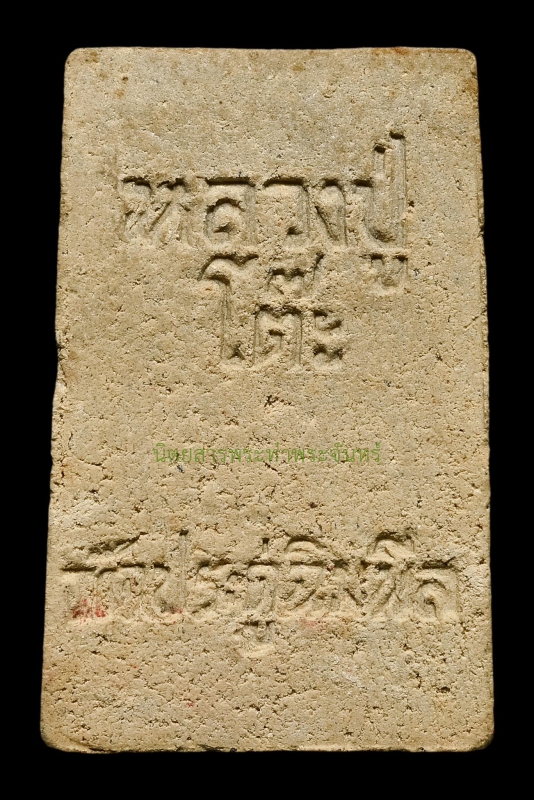 หลวงปู่
โต๊ะ
นิตยสารพระท่าพระจันทร์
วัดประดู่ฉิมพลี